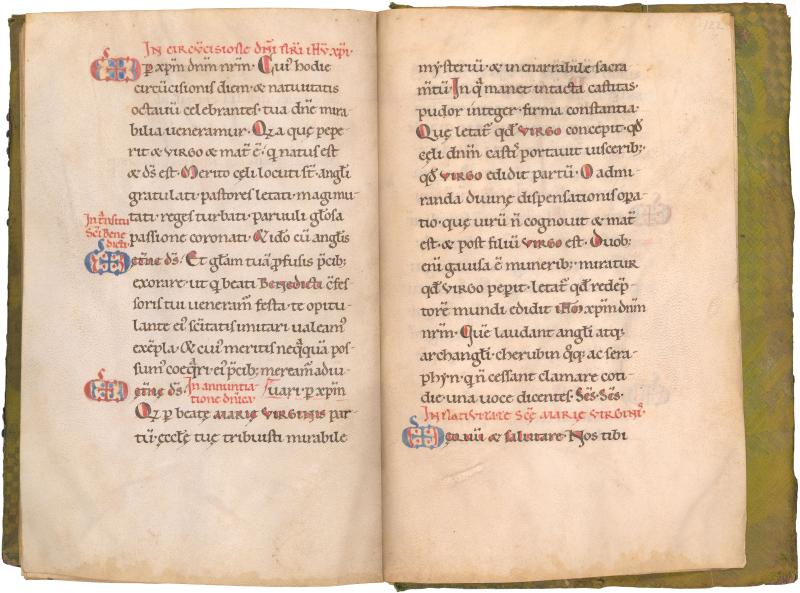 In circūcisione dn̄i nr̄i ihū xp̄i.
p xp̄m dnm nrm. Cuiꝰ hodie
circūcisionis diem & natiuitatis
octauū celebrantes. tua dne mira
bilia ueneramur. Qa quę pepe
rit & uirgo & mat ē. q natus est
& ds̄ est. Merito cęli locuti st̄. angli
gratulati. pastores letati. magi mu
tati. reges turbati. paruuli glōsa
passione coronati. & ido cū anglis
In tn̄situ
Sc̄i Bene
dicti.
ęterne ds̄. Et glam tuā ꝓfusis pcib;
exorare. ut q beati Benedicti cfes
soris tui ueneram̄ festa. te opitu
lante eiꝰ scītatis imitari ualeamꝰ
exēpla. & cuiꝰ meritis neqquā pos
sumꝰ coeqri. ei pcib; meream̄ adiu
ęterne ds̄. In annuntia uari. p xp̄m
tione dn̄ica
Qa p beatę MARIĘ VIRGINIS par
tū. ęcclę tuę tribuisti mirabile
122
mysteriū. & inenarrabile sacra
mtū. In q manet intacta castitas.
pudor integer. firma constantia.
Quę letat̄ qd VIRGO concepit. qd
cęli dnm casti portauit uiscerib;.
qd VIRGO edidit partū. O admi
randa diuinę dispensationis opa
tio. quę uirū n̄ cognouit & mat
est. & post filiū VIRGO est. Duob;
eni gauisa ē munerib;. miratur
qd VIRGO pepit. letat̄ qd redēp
torē mundi edidit ihm̄ xp̄m dnm
nrm. Quē laudant angli atq;
archangli. cherubin qq; ac sera
phyn. q n̄ cessant clamare coti
die. una uoce dicentes. Sc̄s. Sc̄s.
In natiuitate Scę MARIĘ VIRGINIS.
Equū & salutare. Nos tibi